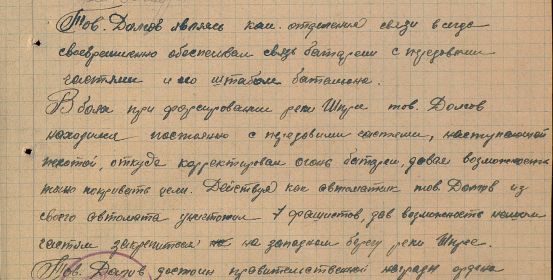 Тов. Долгов являясь ком. отделения связи всегда
своевременно обеспечивал связь батареи с передовыми
частями и со штабом баттальона.
В боях при форсировании реки Шпрее тов. Долгов
находился постоянно с передовыми частями, наступающей
пехотой, откуда корректировал огонь батареи, давая возможность
точно покрывать цели. Действуя как автоматчик тов. Долгов из
своего автомата уничтожил 7 фашистов, дав возможность нашим
частям закрепиться на западном берегу реки Шпрее.
Тов. Долгов достоин правительственной награды ордена